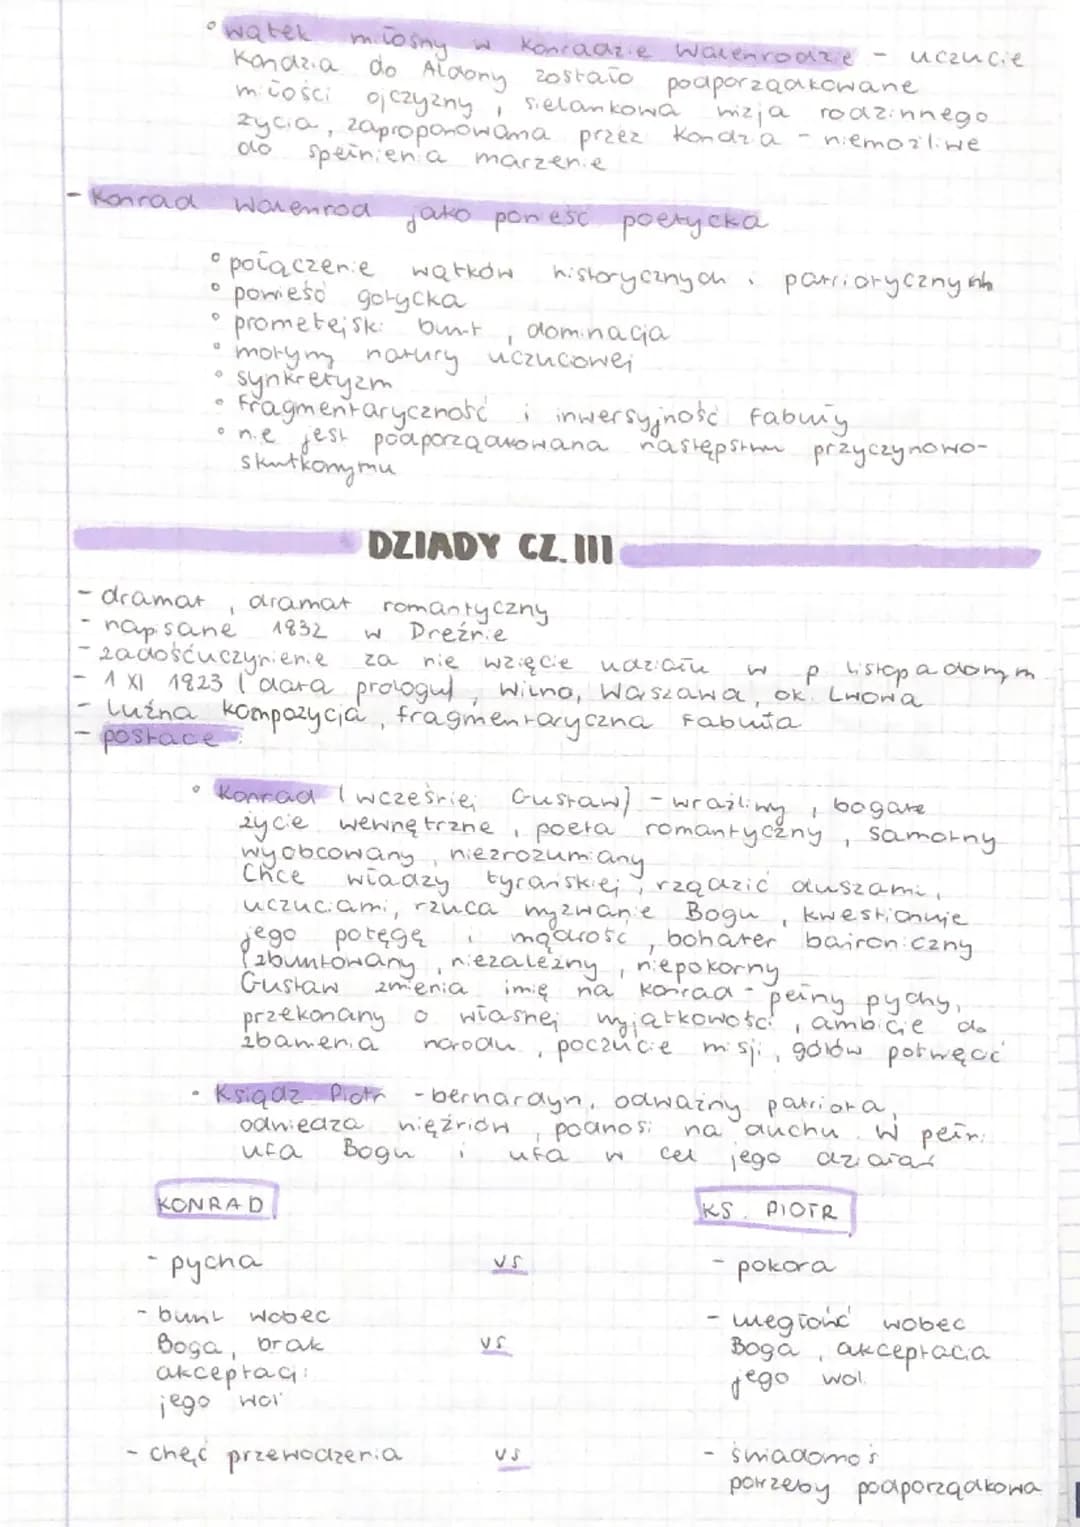 ° wątek miłosny w Konradzie Wallenrodzie - uczucie
Kondzia do Aldony zostało podporządkowane
miłości ojczyzny, sielankowa wizja rodzinnego
życia, zaproponowana przez Kondzia - niemożliwe
do spełnienia marzenie
- Konrad Wallenrod jako powieść poetycka
° połączenie wątków historycznych i patriotycznych
° powieść gotycka
° prometejski bunt, dominacja
° motywy natury uczuciowej
° synkretyzm
° fragmentaryczność i inwersyjność fabuły
° nie jest podporządkowana następstwu przyczynowo-
skutkowymu
DZIADY CZ. III
- dramat, dramat romantyczny
- napisane 1832 w Dreźnie
- zadośćuczynienie za nie wzięcie udziału w p. listopadowym
- 1 XI 1823 (data prologu), Wilno, Warszawa, ok. Lwowa
- luźna kompozycja, fragmentaryczna fabuła
- postacie:
° Konrad (wcześniej Gustaw) - wrażliwy, bogate
życie wewnętrzne, poeta romantyczny, samotny
wyobcowany, niezrozumiany
Chce władzy tyrańskiej, rządzić duszami,
uczuciami, rzuca wyzwanie Bogu, kwestionuje
jego potęgę i mądrość, bohater baironiczny
(zbuntowany, niezależny, niepokorny
Gustaw zmienia imię na Konrad - pełny pychy,
przekonany o własnej wyjątkowości, ambicje do
zbawienia narodu, poczucie misji, gotów poświęcić
• Ksiądz Piotr - bernardyn, odważny patriota,
odwiedza więźniów, podnosi na duchu. W pełni
ufa Bogu i ufa w cel jego działań
KONRAD KS. PIOTR
- pycha vs - pokora
- bunt wobec - uległość wobec
Boga, brak vs Boga, akceptacja
akceptacji jego woli
jego woli
- chęć przewodzenia vs - świadomoś
potrzeby podporządkowa